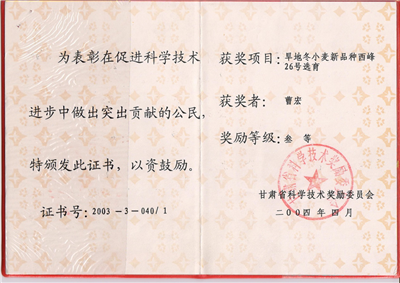 为表彰在促进科学技术
进步中做出突出贡献的公民，
特颁发此证书，以资鼓励。
证书号：2003-3-040/1
获奖项目：旱地冬小麦新品种西峰
26号选育
获奖者：曹宏
奖励等级：叁 等
甘肃省科学技术奖励委员会
二00四年四月